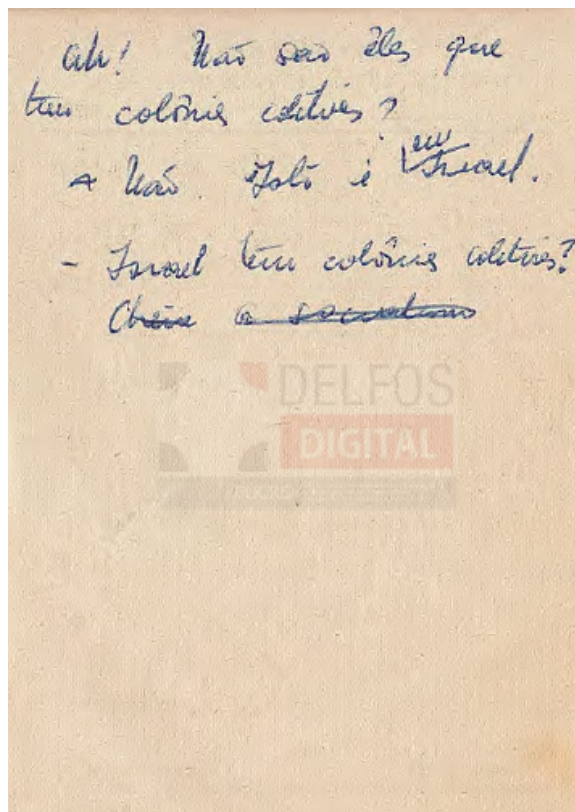 Ah! Não são êles que
tem colônias coletivas?
- Não. Isto é em Israel.
- Israel tem colônias coletivas?
Cheira a socialismo
DELFOS
DIGITAL